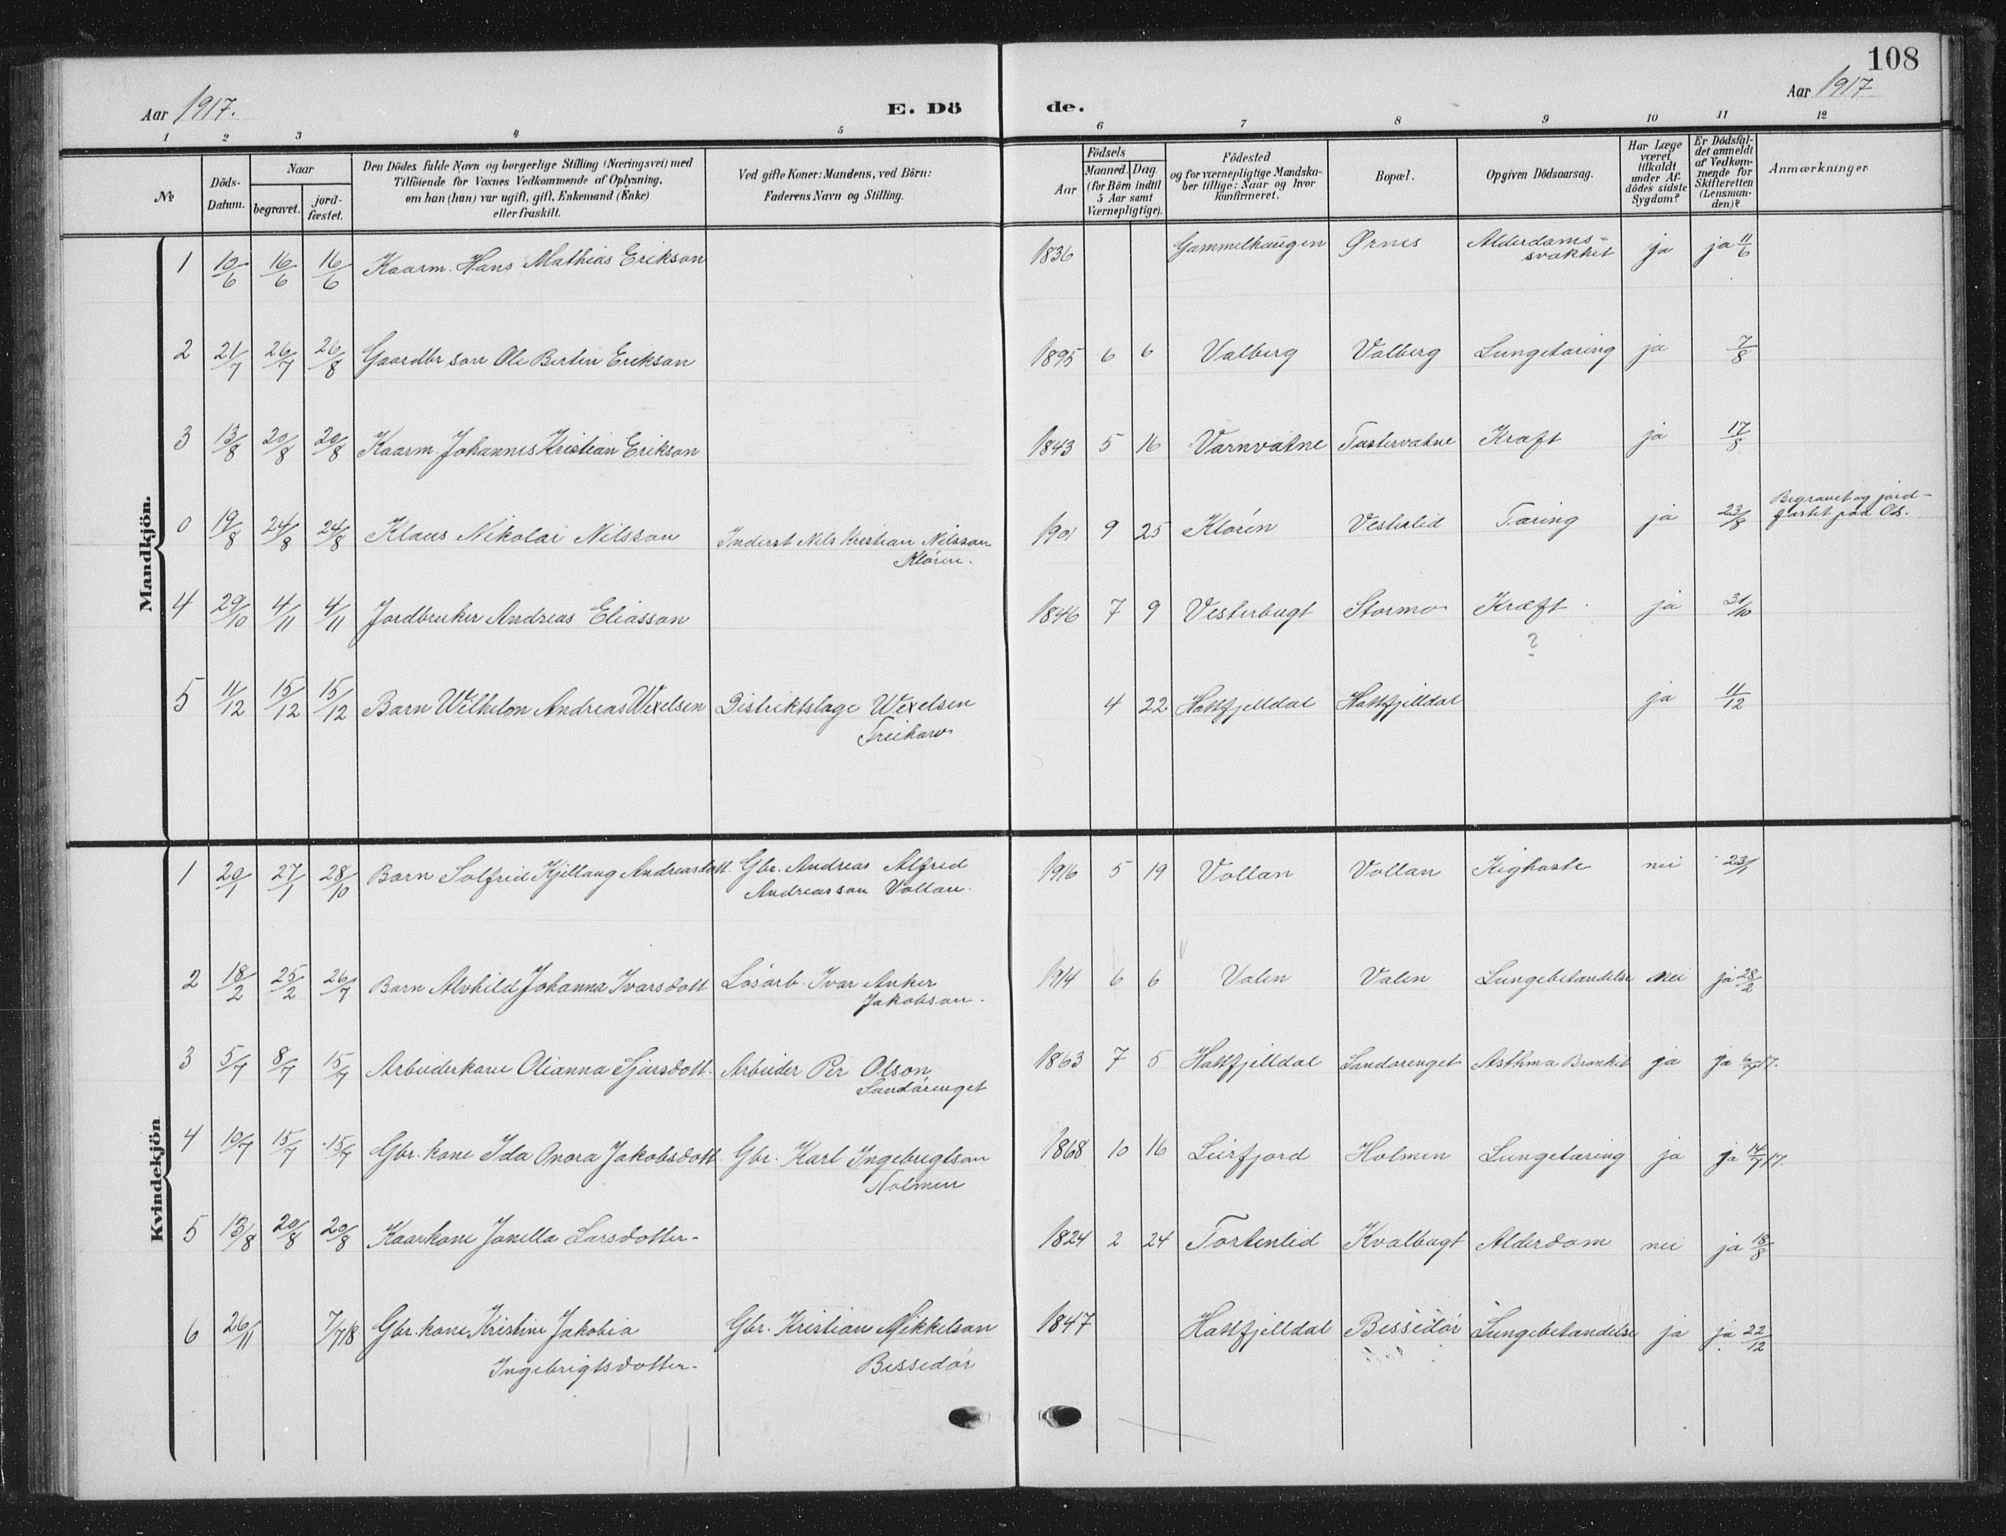 108
Aar 1917.
E. Dö de.
Aar 1917
1 2 3 4 5 6 7 8 9 10 11 12
№
Döds-Datum.
Naar
begravet.
jord-fæstet.
Den Dödes fulde Navn og borgerlige Stilling (Næringsvei) med
Tilföiende for Voxnes Vedkommende af Oplysning,
om han (hun) var ugift, gift, Enkemand (Enke)
eller fraskilt.
Ved gifte Koner: Mandens, ved Börn:
Faderens Navn og Stilling.
Aar
Födsels
Maaned. Dag.
(for Börn indtil
5 Aar samt
Værnepligtige).
Födested
og for værnepligtige Mandska-
ber tillige: Naar og hvor
konfirmeret.
Bopæl.
Opgiven Dödsaarsag.
Har Læge
været
tilkaldt
under Af-
dödes sidste
Sygdom?
Er Dödsfal-
det anmeldt
af Vedkom-
mende for
Skifteretten
(Lensman-
den)?
Anmærkninger
Mandkjön.
1 10/6 16/6 16/6 Kaarm. Hans Mathias Erikson 1836 Gammelhaugen Ørnes Alderdoms-
svakhet ja ja 11/6
2 21/7 26/7 26/8 Gaardbr son Ole Bertin Erikson 1895 6 6 Valberg Valberg Lungetæring ja 7/8
3 13/8 20/8 20/8 Kaarm. Johannes Kristian Erikson 1843 5 16 Varnvatne Tustervatne Kræft ja 17/8
0 19/8 24/8 24/8 Klaus Nikolai Nilsson Inderst Nils Kristian Nilsson
Kløren. 1901 9 25 Kløren Vesterlid Tæring ja 23/8 Begravet og jord-
fæstet paa Os.
4 29/10 4/11 4/11 Jordbruker Andreas Eliasson 1846 7 9 Vesterbugt Stormo Kræft ja 31/10
?
5 11/12 15/12 15/12 Barn Wilhelm Andreas Wexelsen Distriktslæge Wexelsen
4 22 Hatfjelldal Hatfjelldal ja 11/12
Kvindekjön
1 20/1 27/1 28/10 Barn Solfrid Kjellaug Andreasdott. Gbr. Andreas Alfred
Andreasson Vollan. 1916 5 19 Vollan Vollan Kighoste nei 23/1
2 18/2 25/2 26/7 Barn Alvhild Johanna Ivarsdott Løsarb. Ivar Anker
Jakobson. 1914 6 6 Valen Valen Lungebetændelse nei ja 28/2
3 5/7 8/7 15/7 Arbeiderkone Olianna Sjursdott. Arbeider Per Olson
Sandørenget 1863 7 5 Hatfjelldal Sandørenget Asthma Bronkit ja ja 6/7 17.
4 10/7 15/7 15/7 Gbr. kone Ida Onora Jakobsdott Gbr. Karl Ingebrigtson
Holmen 1868 10 16 Leirfjord Holmen Lungetæring ja ja 14/7 17.
5 13/8 20/8 20/8 Kaarkone Jonella Larsdotter- 1824 2 24 Tortenlid Kvalbugt Alderdom nei ja 18/8
6 26/11 7/7 18 Gbr. kone Kristine Jakobia
Ingebrigtsdotter- Gbr. Kristian Mikkelson
Bessedør 1847 Hatfjelldal Bessedør Lungebetændelse ja ja 22/12